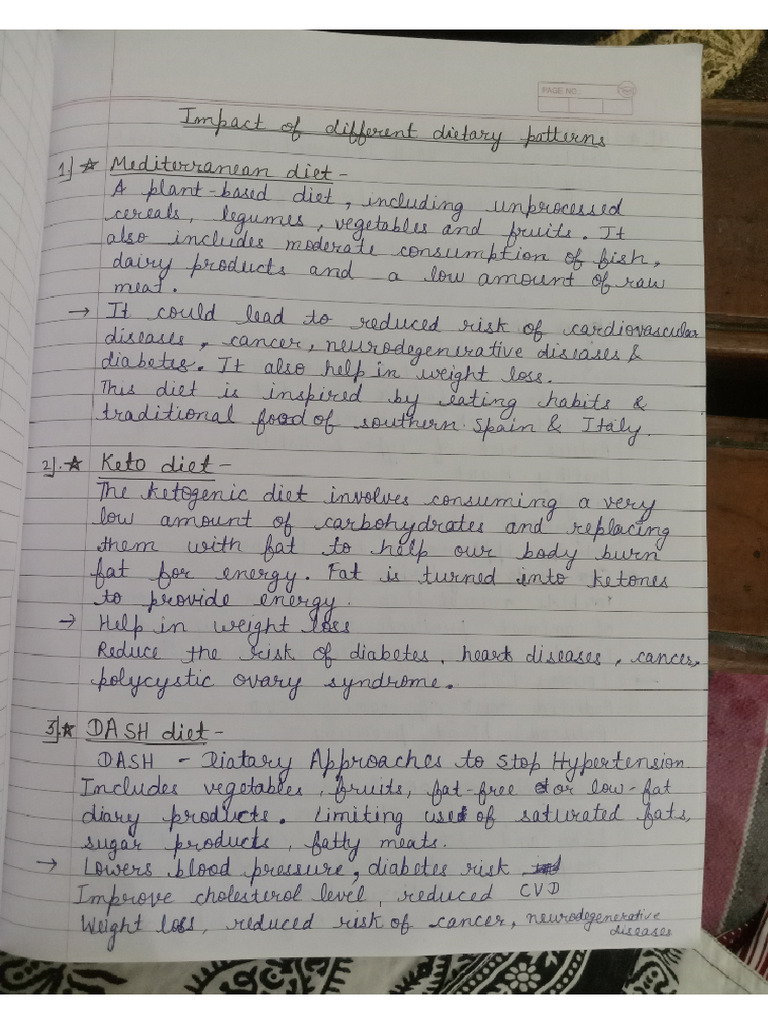 PAGE NO.
Impact of different dietary patterns
1] ★ Mediterranean diet -
A plant-based diet, including unprocessed
cereals, legumes, vegetables and fruits. It
also includes moderate consumption of fish,
dairy products and a low amount of raw
meat.
→ It could lead to reduced risk of cardiovascular
diseases, cancer, neurodegenerative diseases &
diabetes. It also help in weight loss.
This diet is inspired by eating habits &
traditional food of southern Spain & Italy.
2]. ★ Keto diet -
The ketogenic diet involves consuming a very
low amount of carbohydrates and replacing
them with fat to help our body burn
fat for energy. Fat is turned into ketones
to provide energy.
→ Help in weight loss
Reduce the risk of diabetes, heart diseases, cancer,
polycystic ovary syndrome.
3]. ★ DASH diet -
DASH - Diatary Approaches to Stop Hypertension.
Includes vegetables, fruits, fat-free or low-fat
diary products. Limiting use of saturated fats,
sugar products, fatty meats.
→ Lowers blood pressure, diabetes risk
Improve cholesterol level, reduced CVD
Weight loss, reduced risk of cancer, neurodegenerative
diseases